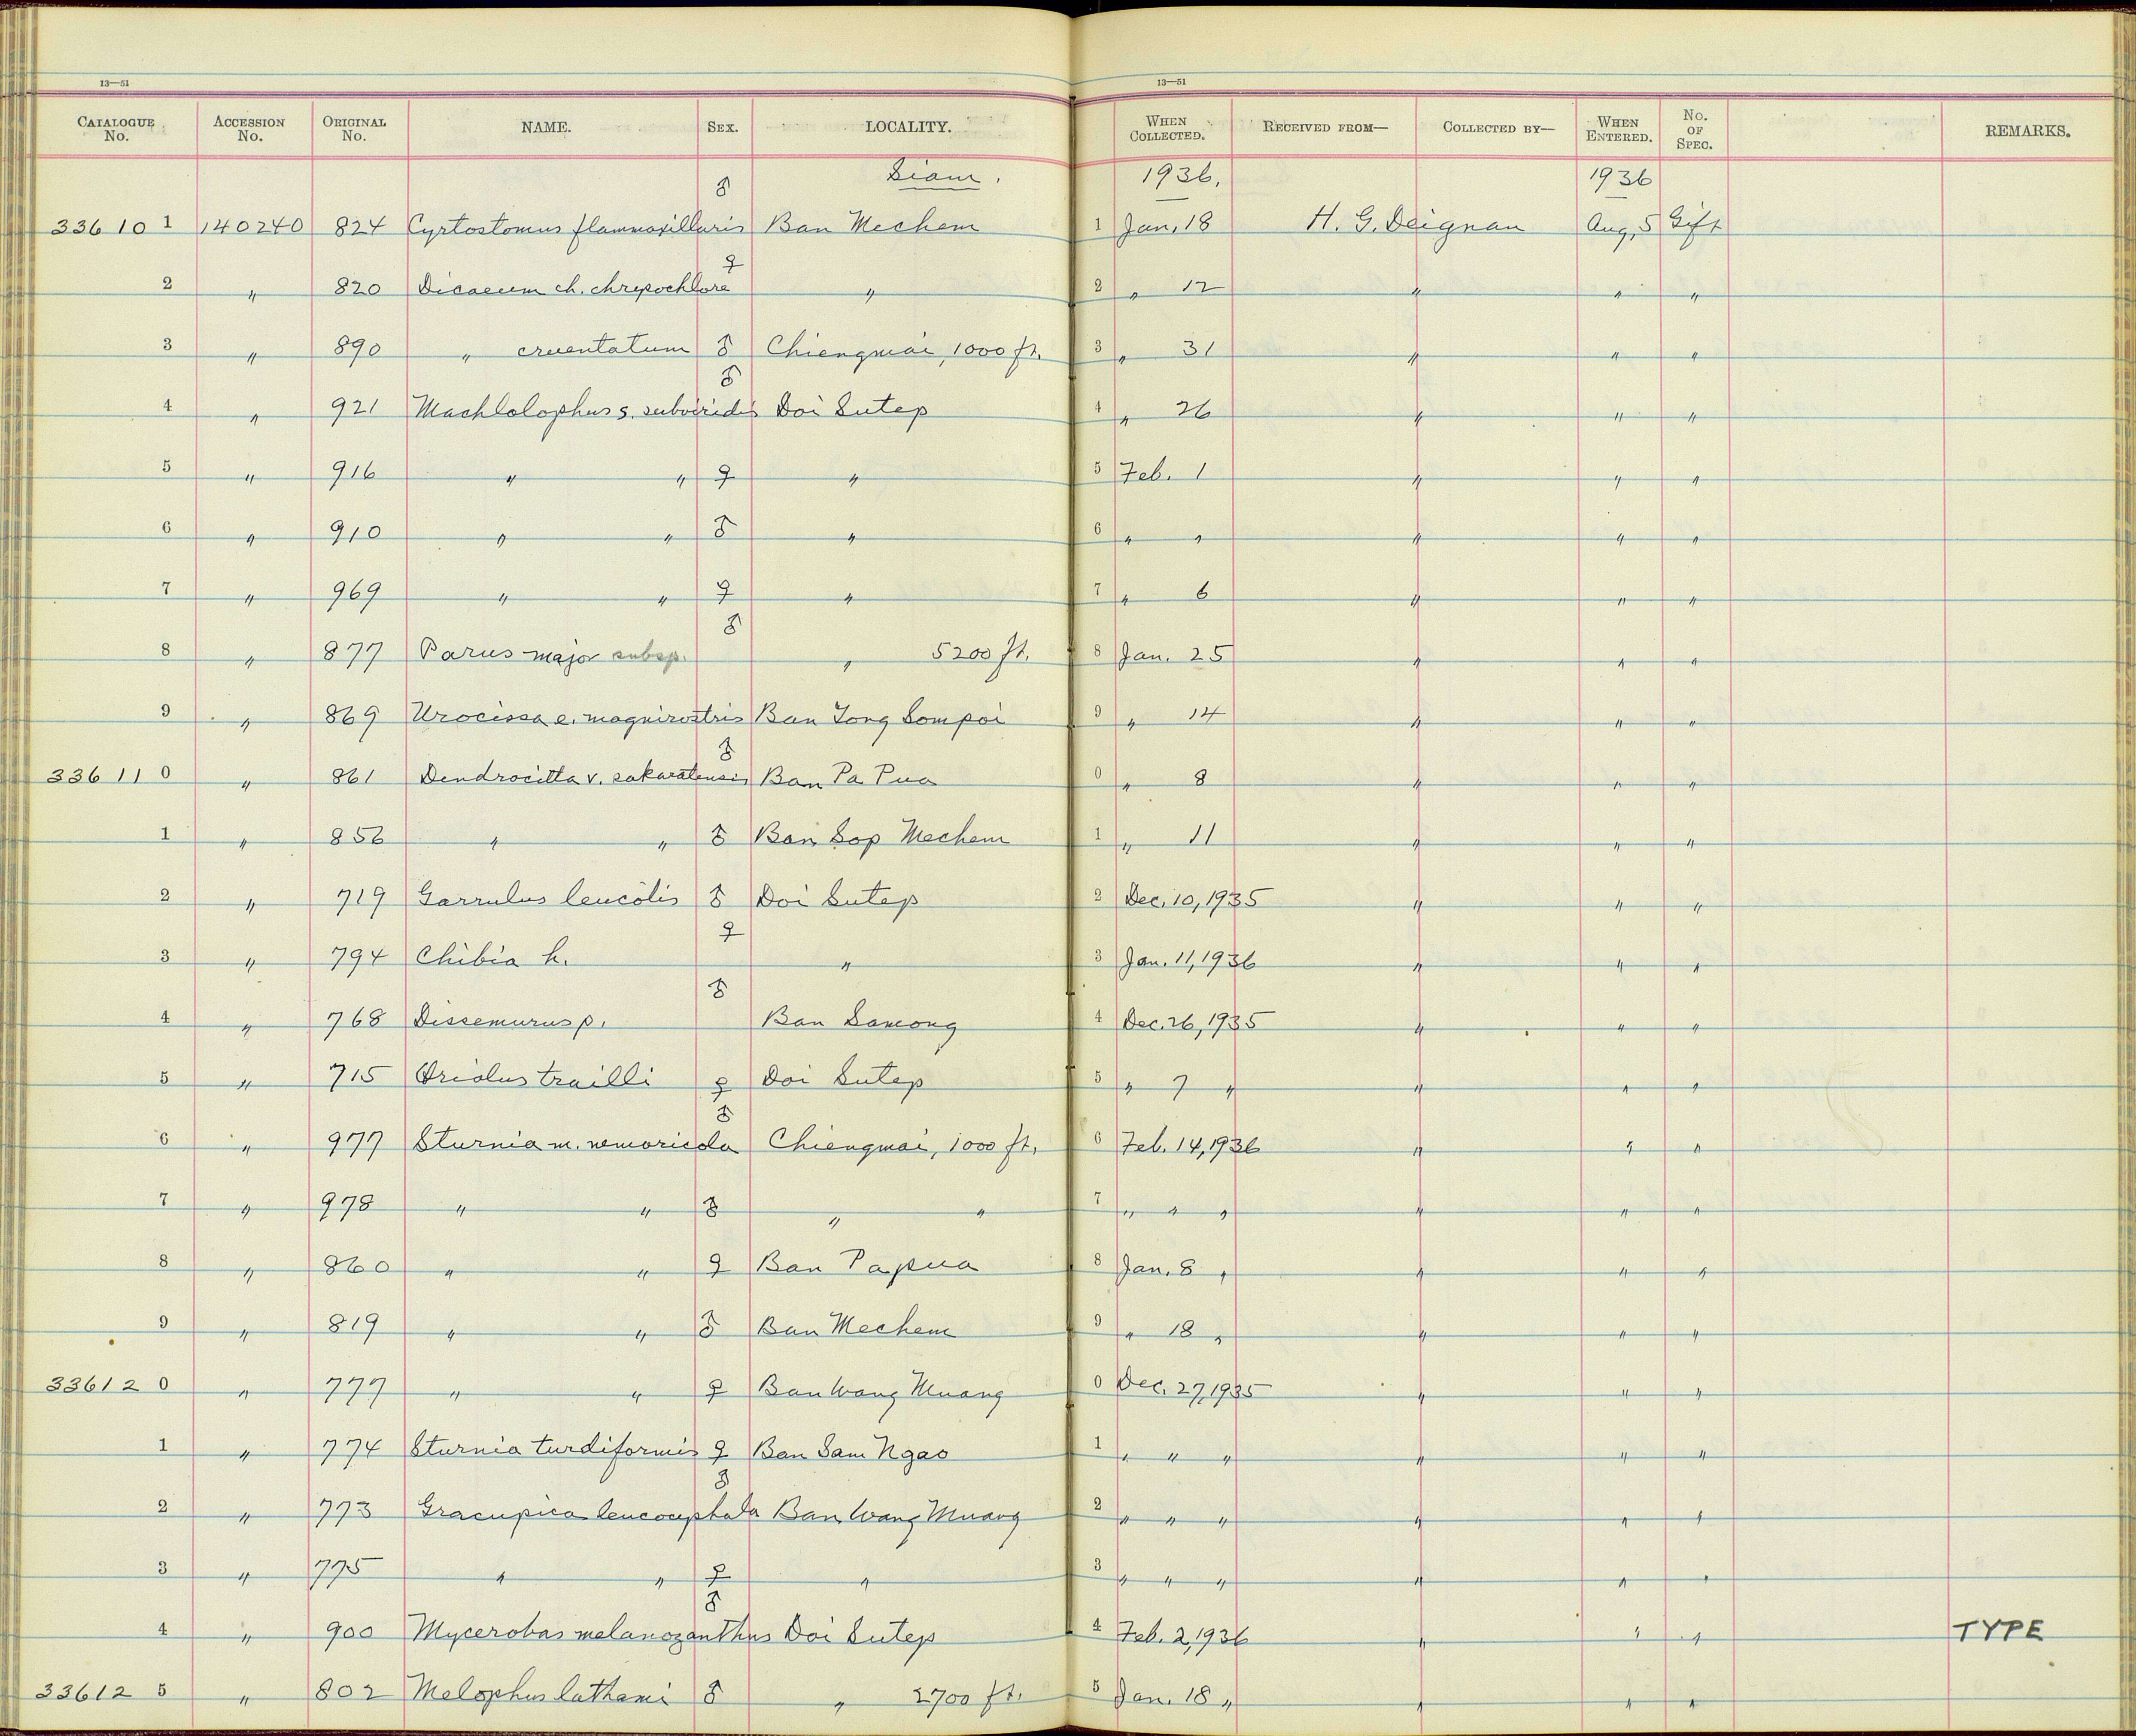 13—51 13—51
CATALOGUE No. ACCESSION No. ORIGINAL No. NAME. SEX. LOCALITY. WHEN COLLECTED. RECEIVED FROM— COLLECTED BY— WHEN ENTERED. No. OF SPEC. REMARKS.
Siam. 1936. 1936
336101 140240 824 Cyrtostomus flammaxillaris ♂ Ban Mechem 1 Jan. 18 H. G. Deignan Aug. 5 Gift
2 " 820 Dicaeum ch. chrysochlore ♀ " 2 " 12 " " "
3 " 890 " cruentatum ♂ Chiengmai, 1000 ft. 3 " 31 " " "
4 " 921 Machlolophus s. subviridis ♂ Doi Sutep 4 " 26 " " "
5 " 916 " " ♀ " 5 Feb. 1 " " "
6 " 910 " " ♂ " 6 " " " " "
7 " 969 " " ♀ " 7 " 6 " " "
8 " 877 Parus major subsp. ♂ " 5200 ft. 8 Jan. 25 " " "
9 " 869 Urocissa e. magnirostris Ban Tong Sompoi 9 " 14 " " "
336110 " 861 Dendrocitta v. sakaratensis ♂ Ban Pa Pua 0 " 8 " " "
1 " 856 " " ♂ Ban Sop Mechem 1 " 11 " " "
2 " 719 Garrulus leucotis ♂ Doi Sutep 2 Dec. 10, 1935 " " "
3 " 794 Chibia h. ♀ " 3 Jan. 11, 1936 " " "
4 " 768 Dissemurus p. ♂ Ban 4 Dec. 26, 1935 " " "
5 " 715 Oriolus trailli ♀ Doi Sutep 5 " 7 " " " "
6 " 977 Sturnia m. nemoricola ♂ Chiengmai, 1000 ft. 6 Feb. 14, 1936 " " "
7 " 978 " " ♂ " " 7 " " " " " "
8 " 860 " " ♀ Ban Papua 8 Jan. 8 " " " "
9 " 819 " " ♂ Ban Mechem 9 " 18 " " " "
336120 " 777 " " ♀ Ban Wang Muang 0 Dec. 27, 1935 " " "
1 " 774 Sturnia turdiformis ♀ Ban Sam Ngao 1 " " " " " "
2 " 773 Gracupica leucocephala ♂ Ban Wang Muang 2 " " " " " "
3 " 775 " " ♀ " 3 " " " " " "
4 " 900 Mycerobas melanozanthus ♂ Doi Sutep 4 Feb. 2, 1936 " " " TYPE
336125 " 802 Melophus lathami ♂ " 2700 ft. 5 Jan. 18 " " " "